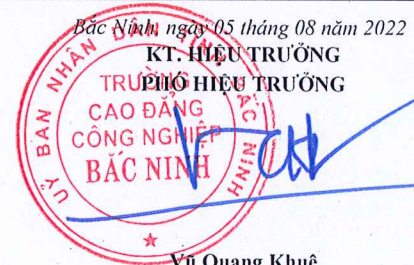 Bắc Ninh, ngày 05 tháng 08 năm 2022
KT. HIỆU TRƯỞNG
PHÓ HIỆU TRƯỞNG
ỦY BAN NHÂN DÂN TỈNH BẮC NINH
TRƯỜNG
CAO ĐẲNG
CÔNG NGHIỆP
BẮC NINH
Vũ Quang Khuê